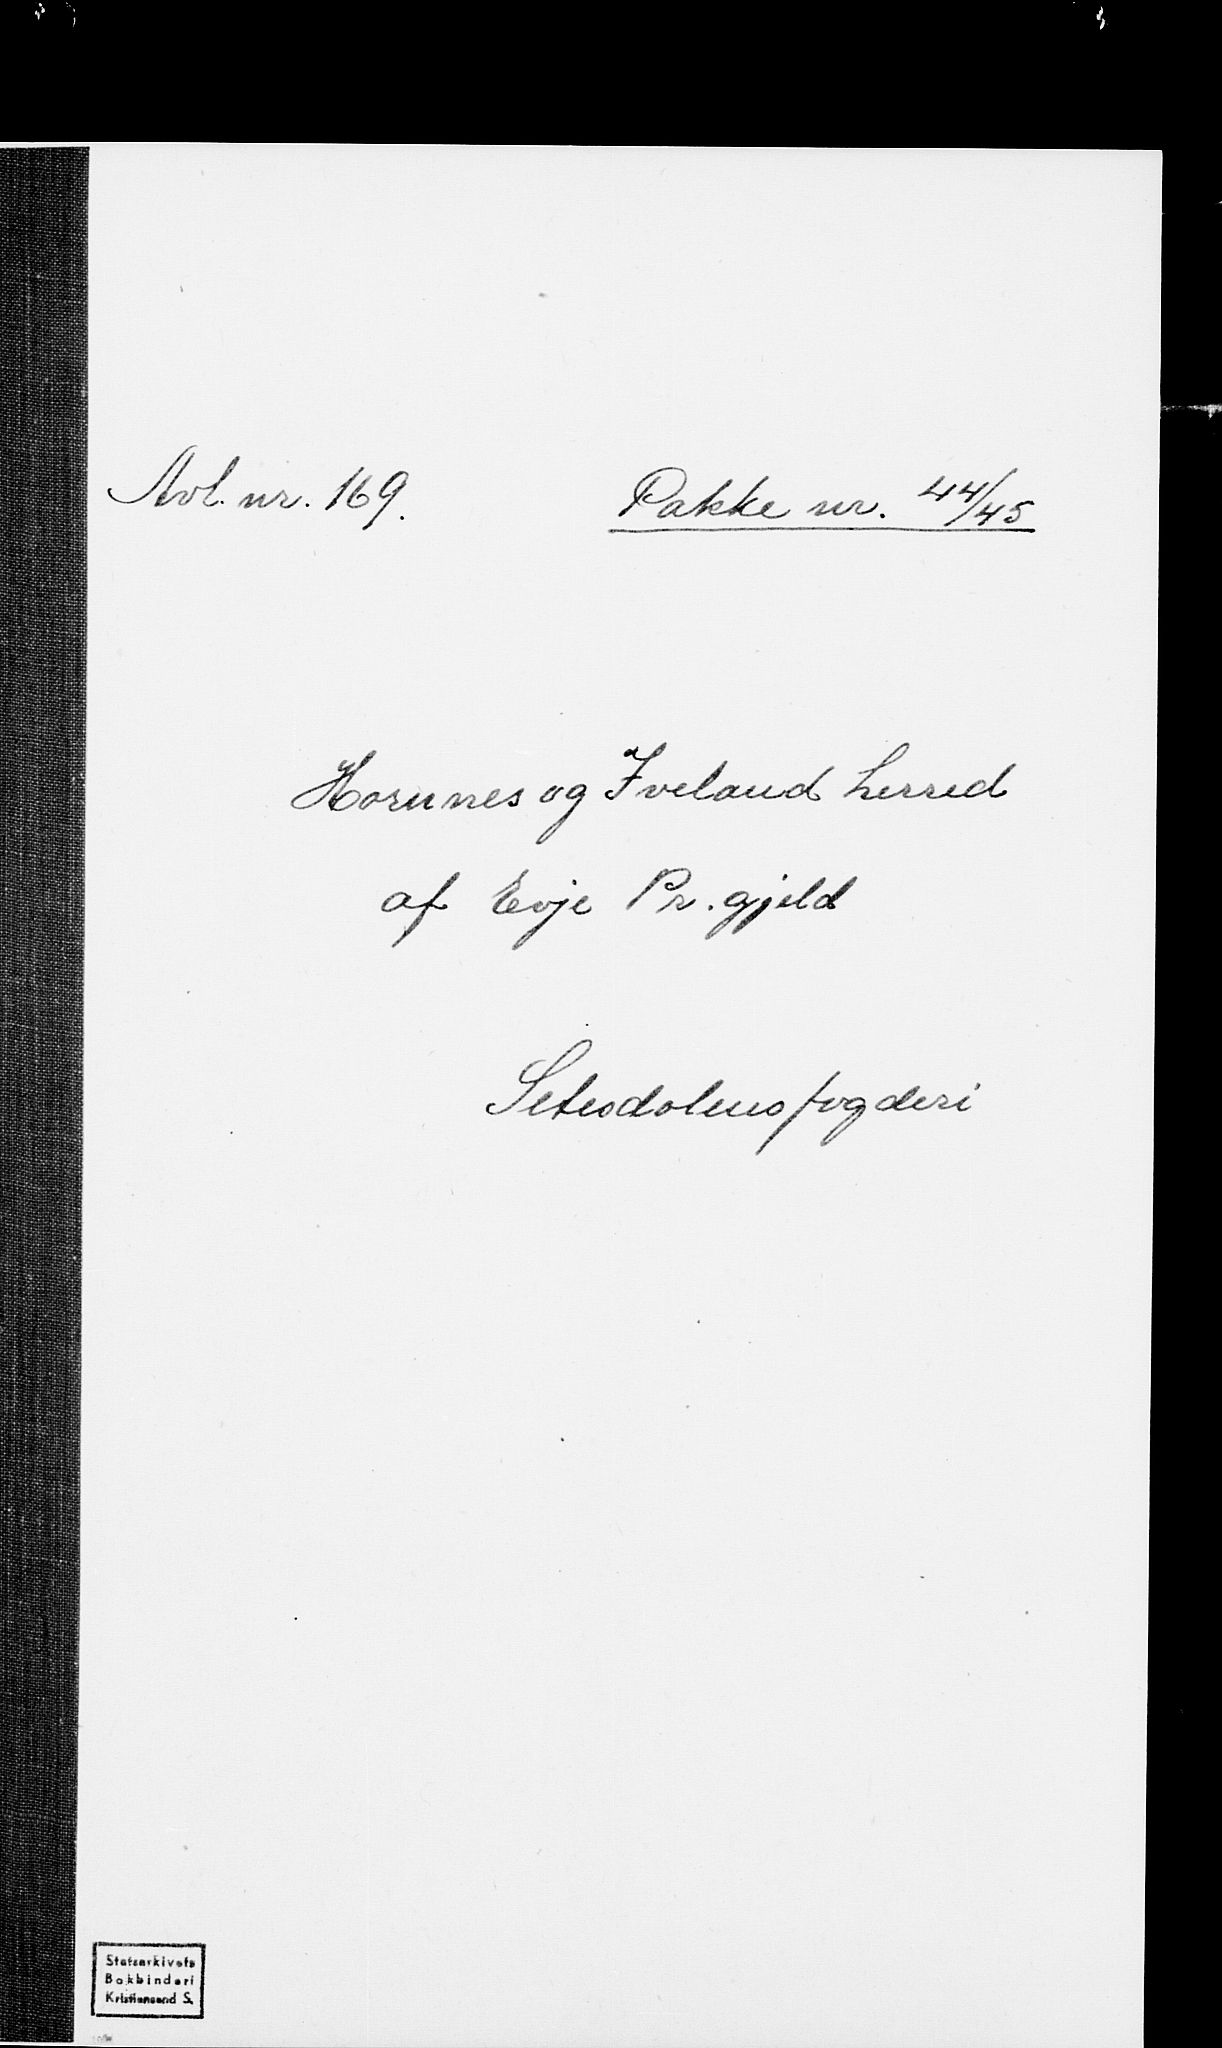 Avl. nr. 169.
Pakke nr. 44/45
Hornnes og Iveland herred
af Evje Pr. gjeld
Setesdalens fogderi
Statsarkivets
Bokbinderi
Kristiansand S.